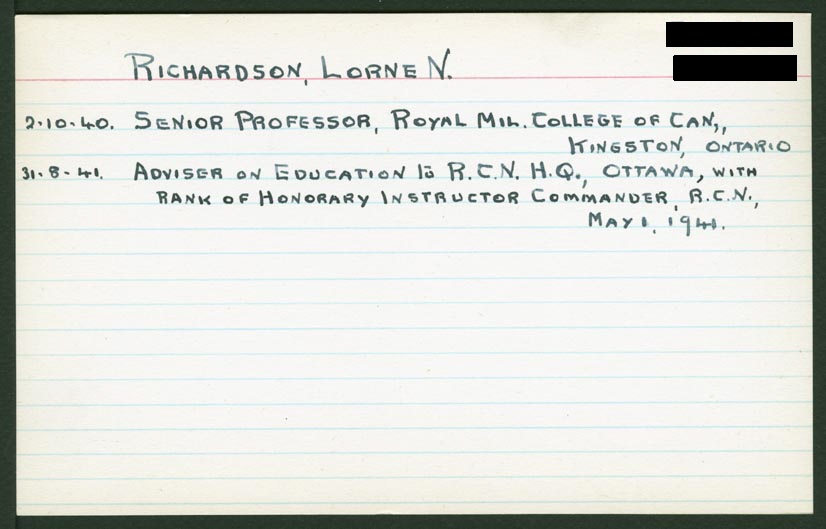 RICHARDSON, LORNE N.
2.10.40. SENIOR PROFESSOR, ROYAL MIL. COLLEGE OF CAN.,
KINGSTON, ONTARIO
31.8.41. ADVISER ON EDUCATION to R.C.N. H.Q., OTTAWA, WITH
RANK OF HONORARY INSTRUCTOR COMMANDER, R.C.N.,
MAY 1, 1941.